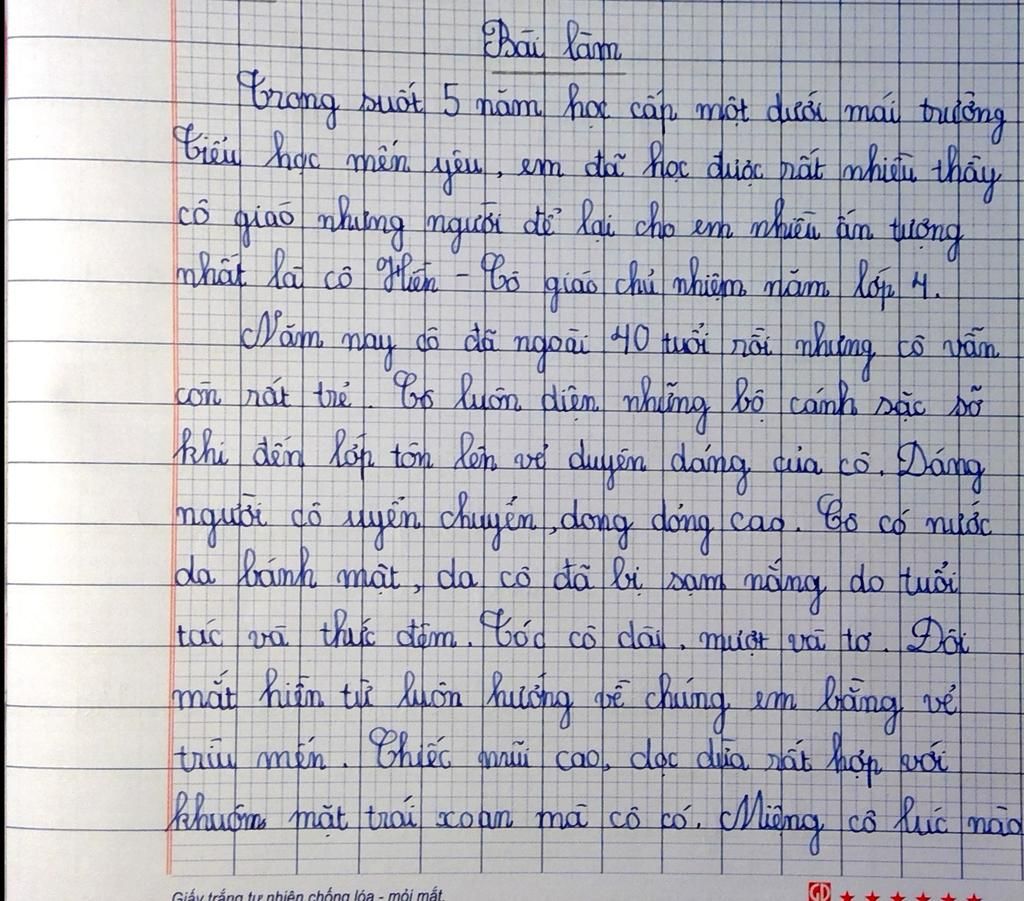 Bài làm
Trong suốt 5 năm học cấp một dưới mái trường
Tiểu học mến yêu, em đã học được rất nhiều thầy
cô giáo nhưng người để lại cho em nhiều ấn tượng
nhất là cô Hiền - Cô giáo chủ nhiệm năm lớp 4.
Năm nay cô đã ngoài 40 tuổi rồi nhưng cô vẫn
còn rất trẻ. Cô luôn diện những bộ cánh sặc sỡ
khi đến lớp tôn lên vẻ duyên dáng của cô. Dáng
người cô uyển chuyển, dong dỏng cao. Cô có nước
da bánh mật, da cô đã bị sạm nắng do tuổi
tác và thức đêm. Tóc cô dài, mượt và tơ. Đôi
mắt hiền từ luôn hướng về chúng em bằng vẻ
trìu mến. Chiếc mũi cao, dọc dừa rất hợp với
khuôn mặt trái xoan mà cô có. Miệng cô lúc nào
Giấy trắng tự nhiên chống lóa - mỏi mắt.
GD